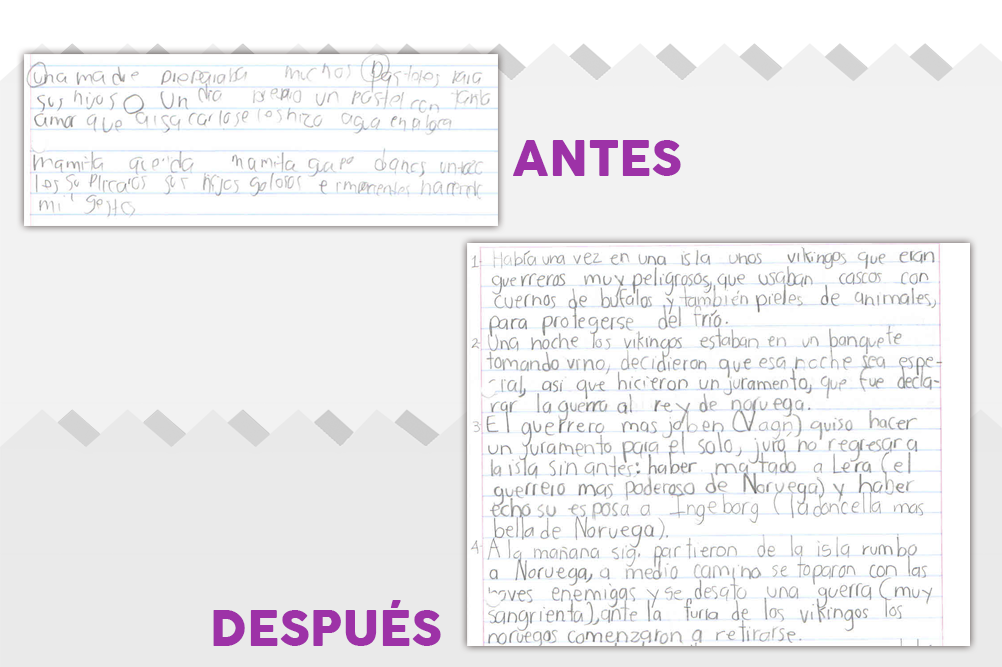 Una madre preparaba muchos Pasteles para
sus hijos. Un dia un pastel con tanto
amor que
mamita querida mamita
sus hijos golosos
mi
ANTES
1- Había una vez en una isla unos vikingos que eran
guerreros muy peligrosos, que usaban cascos con
cuernos de bufalos y también pieles de animales,
para protegerse del frío.
2- Una noche los vikingos estaban en un banquete
tomando vino, decidieron que esa noche sea espe-
cial, asi que hicieron un juramento, que fue decla-
rar la guerra al rey de noruega.
3- El guerrero mas joben (Vagn) quiso hacer
un juramento para el solo, juró no regresar a
la isla sin antes: haber matado a Lera (el
guerrero mas poderoso de Noruega) y haber
echo su esposa a Ingeborg (la doncella mas
bella de Noruega).
4- A la mañana sig. partieron de la isla rumbo
a Noruega, a medio camino se toparon con las
naves enemigas y se desato una guerra (muy
sangrienta), ante la furia de los vikingos los
noruegos comenzaron a retirarse.
DESPUÉS